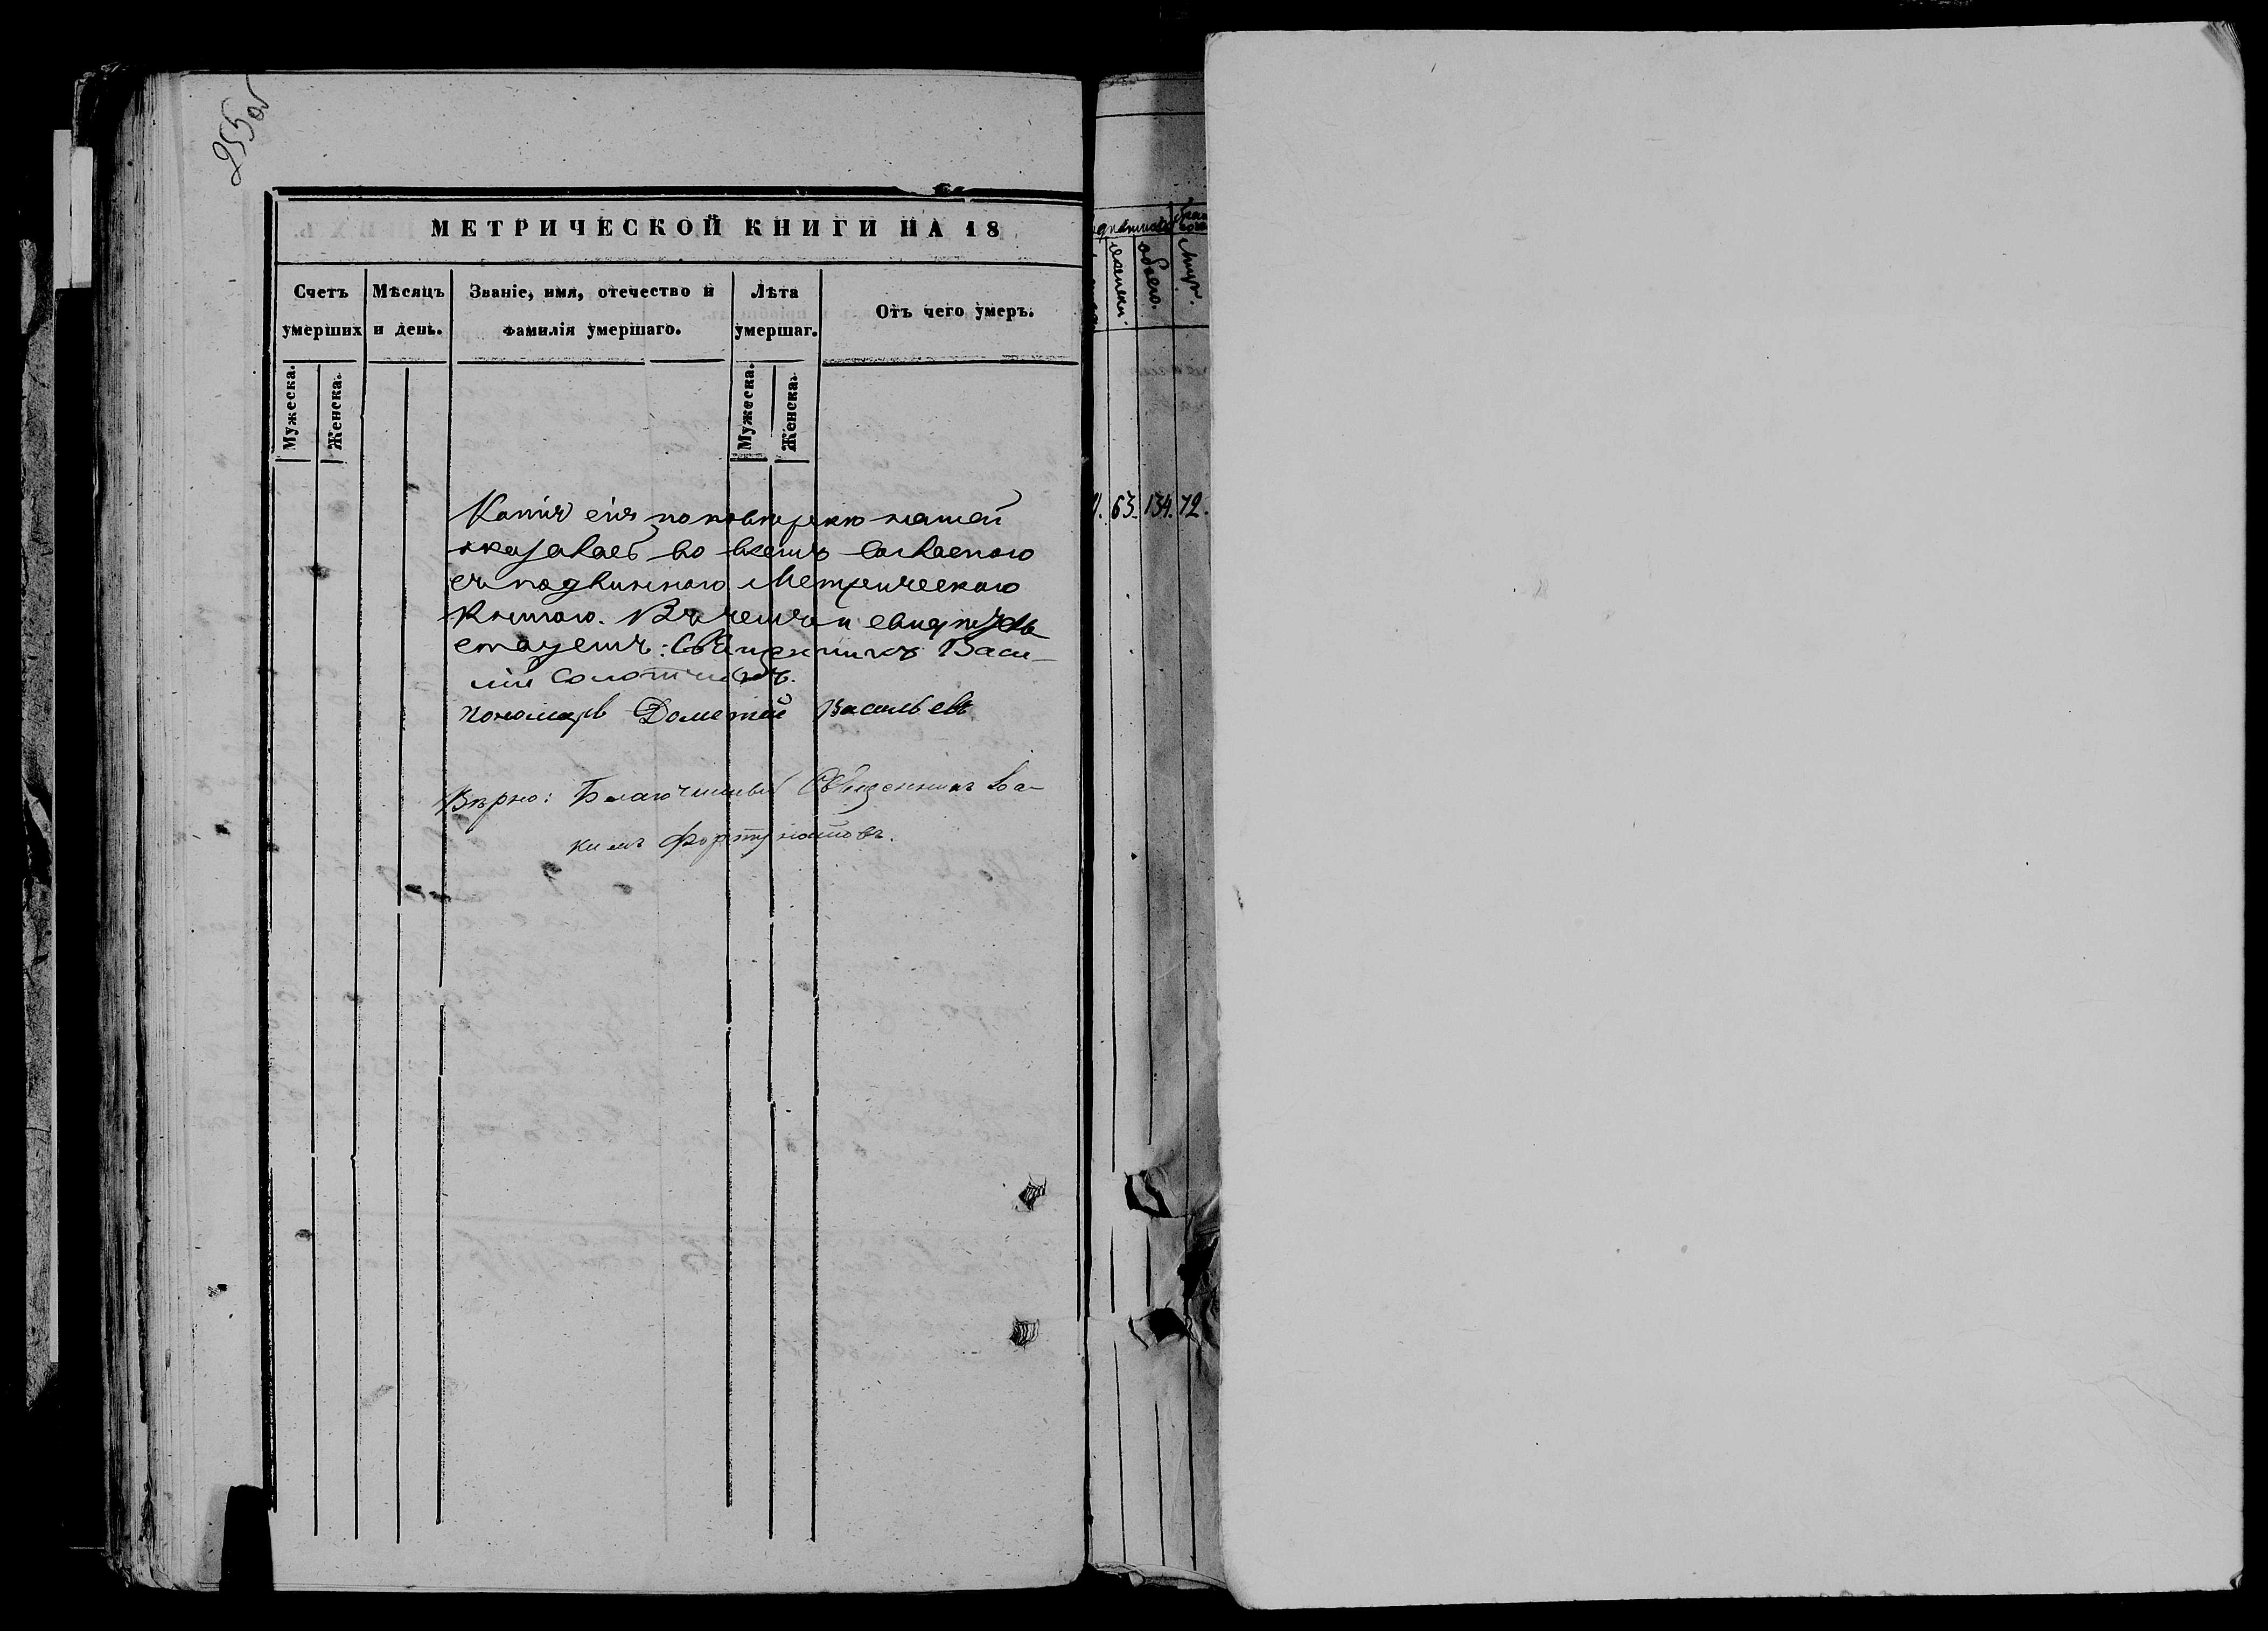 255 об
МЕТРИЧЕСКОЙ КНИГИ НА 18
Счетъ умерших
Мѣсяцъ и день.
Званіе, имя, отечество и фамилія умершаго.
Лѣта умершаг.
Отъ чего умеръ.
Мужеска.
Женска.
Мужеска.
Женска.
Копія сія по повѣрке нашей
оказалась во всемъ согласною
съ подлинною Метрическою
Книгою. Въ чемъ и свидетель
ствуемъ: Священникъ Васи-
лій
Пономарь Дометій Васильевъ
Вѣрно: Благочинный Священникъ Іоа-
кимъ Фортунатовъ.
женски.
обоего.
63. 134. 72.